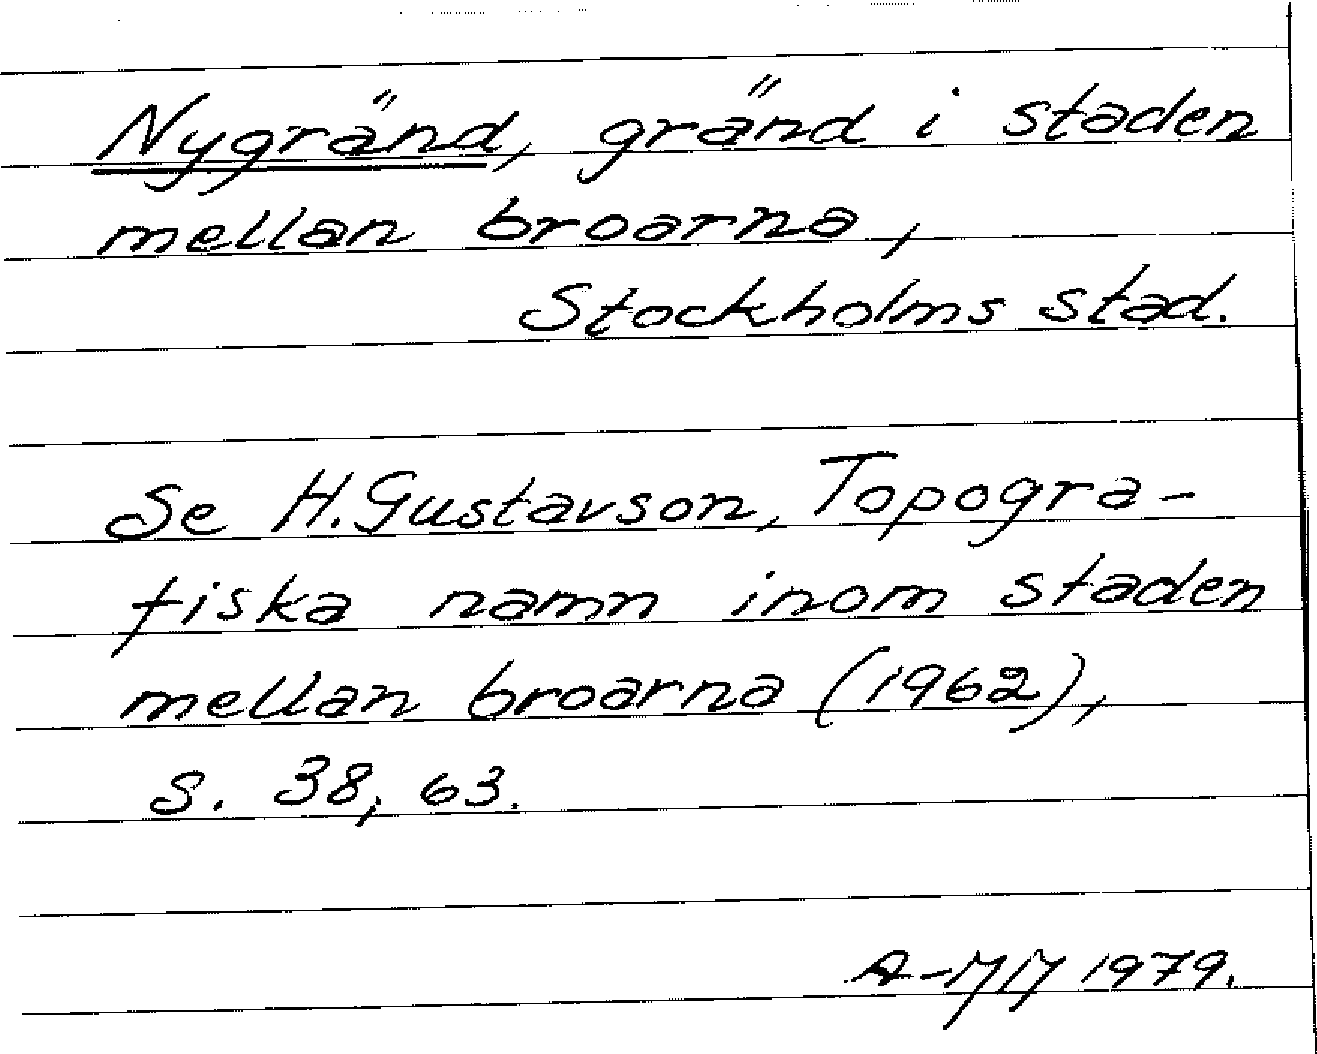 Nygränd, gränd i staden
mellan broarna,
Stockholms stad.
Se H. Gustavson, Topogra-
fiska namn inom staden
mellan broarna (1962),
s. 38, 63.
A-MM 1979.